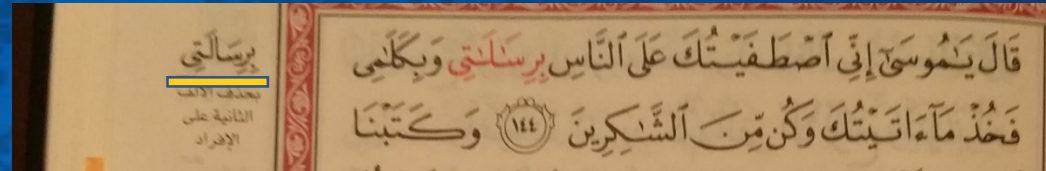 قَالَ يَـٰمُوسَىٰٓ إِنِّى ٱصۡطَفَيۡتُكَ عَلَى ٱلنَّاسِ بِرِسَـٰلَـٰتِى وَبِكَلَـٰمِى
فَخُذۡ مَآ ءَاتَيۡتُكَ وَكُن مِّنَ ٱلشَّـٰكِرِينَ ١٤٤ وَكَتَبۡنَا
بِرِسَالَتِي
بحذف الألف
الثانية على
الإفراد